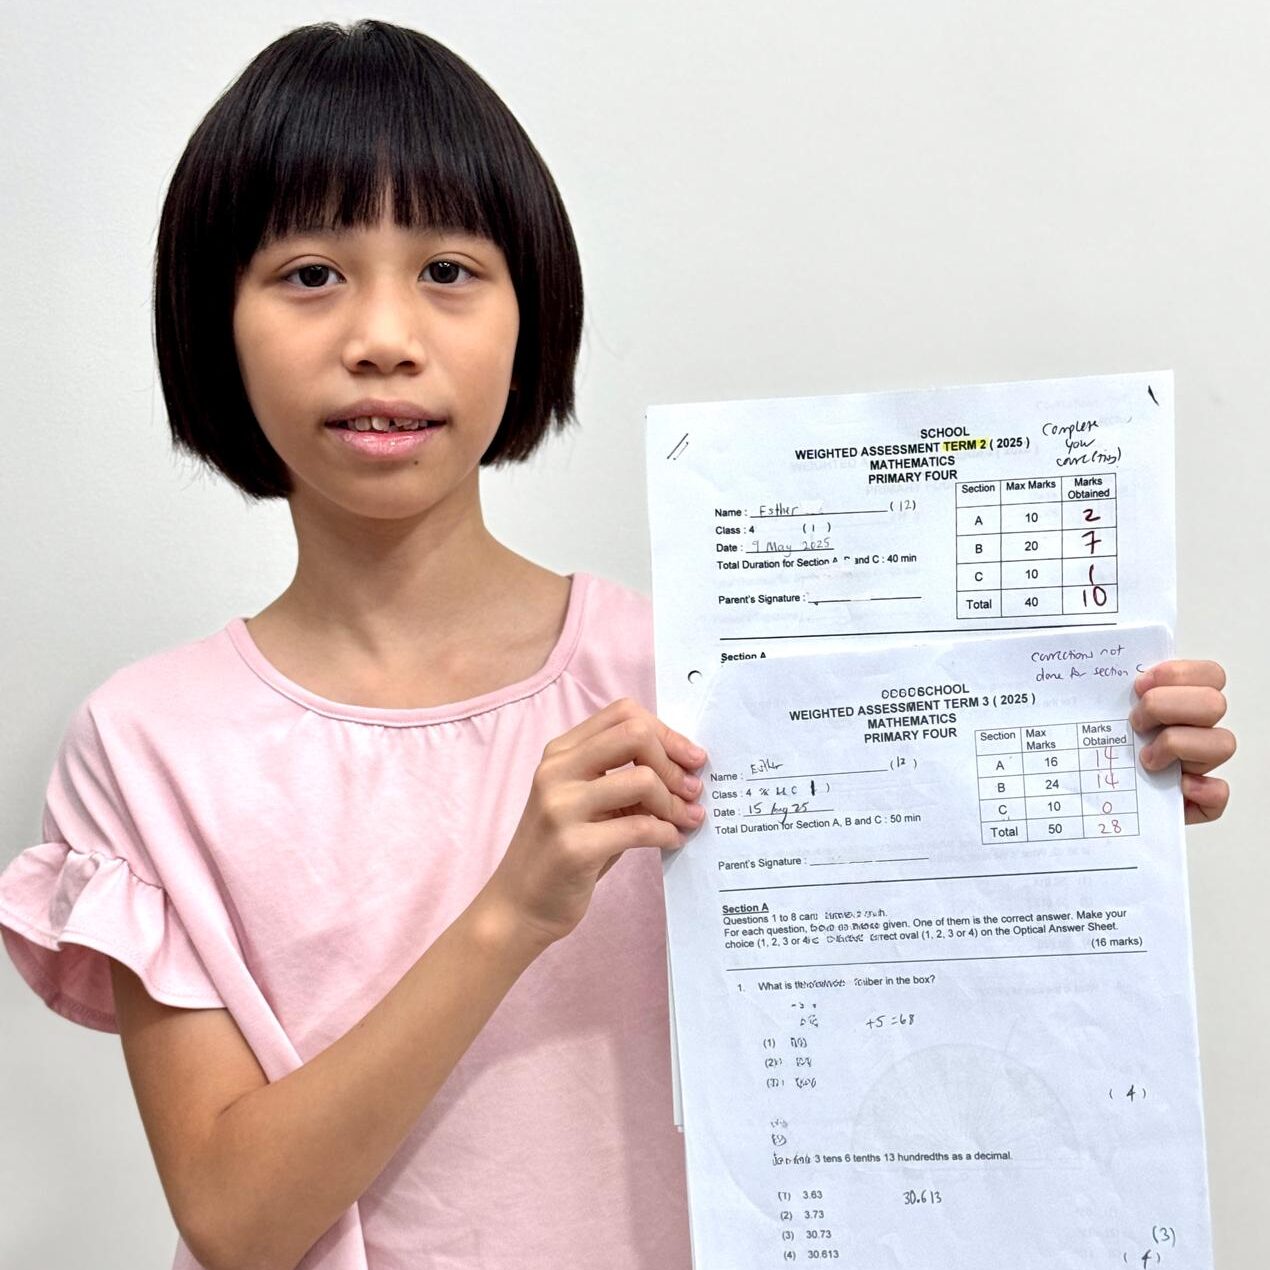 SCHOOL
WEIGHTED ASSESSMENT TERM 2 ( 2025 )
MATHEMATICS
PRIMARY FOUR
Complete
your
corrections
Section Max Marks Marks Obtained
A 10 2
B 20 7
C 10 1
Total 40 10
Name : Esther ( 12 )
Class : 4 ( 1 )
Date : 9 May 2025
Total Duration for Section A and C : 40 min
Parent's Signature :
Section A
corrections not
done for section C
SCHOOL
WEIGHTED ASSESSMENT TERM 3 ( 2025 )
MATHEMATICS
PRIMARY FOUR
Section Max Marks Marks Obtained
A 16 14
B 24 14
C 10 0
Total 50 28
Name : Esther ( 12 )
Class : 4 1 )
Date : 15 Aug 25
Total Duration for Section A, B and C : 50 min
Parent's Signature :
Section A
Questions 1 to 8
For each question, given. One of them is the correct answer. Make your
choice (1, 2, 3 or 4) oval (1, 2, 3 or 4) on the Optical Answer Sheet.
(16 marks)
1. What is in the box?
+5 = 68
(1)
( 4 )
3 tens 6 tenths 13 hundredths as a decimal.
(1) 3.63
30.613
(2) 3.73
(3) 30.73
(3)
(4) 30.613
( 4 )